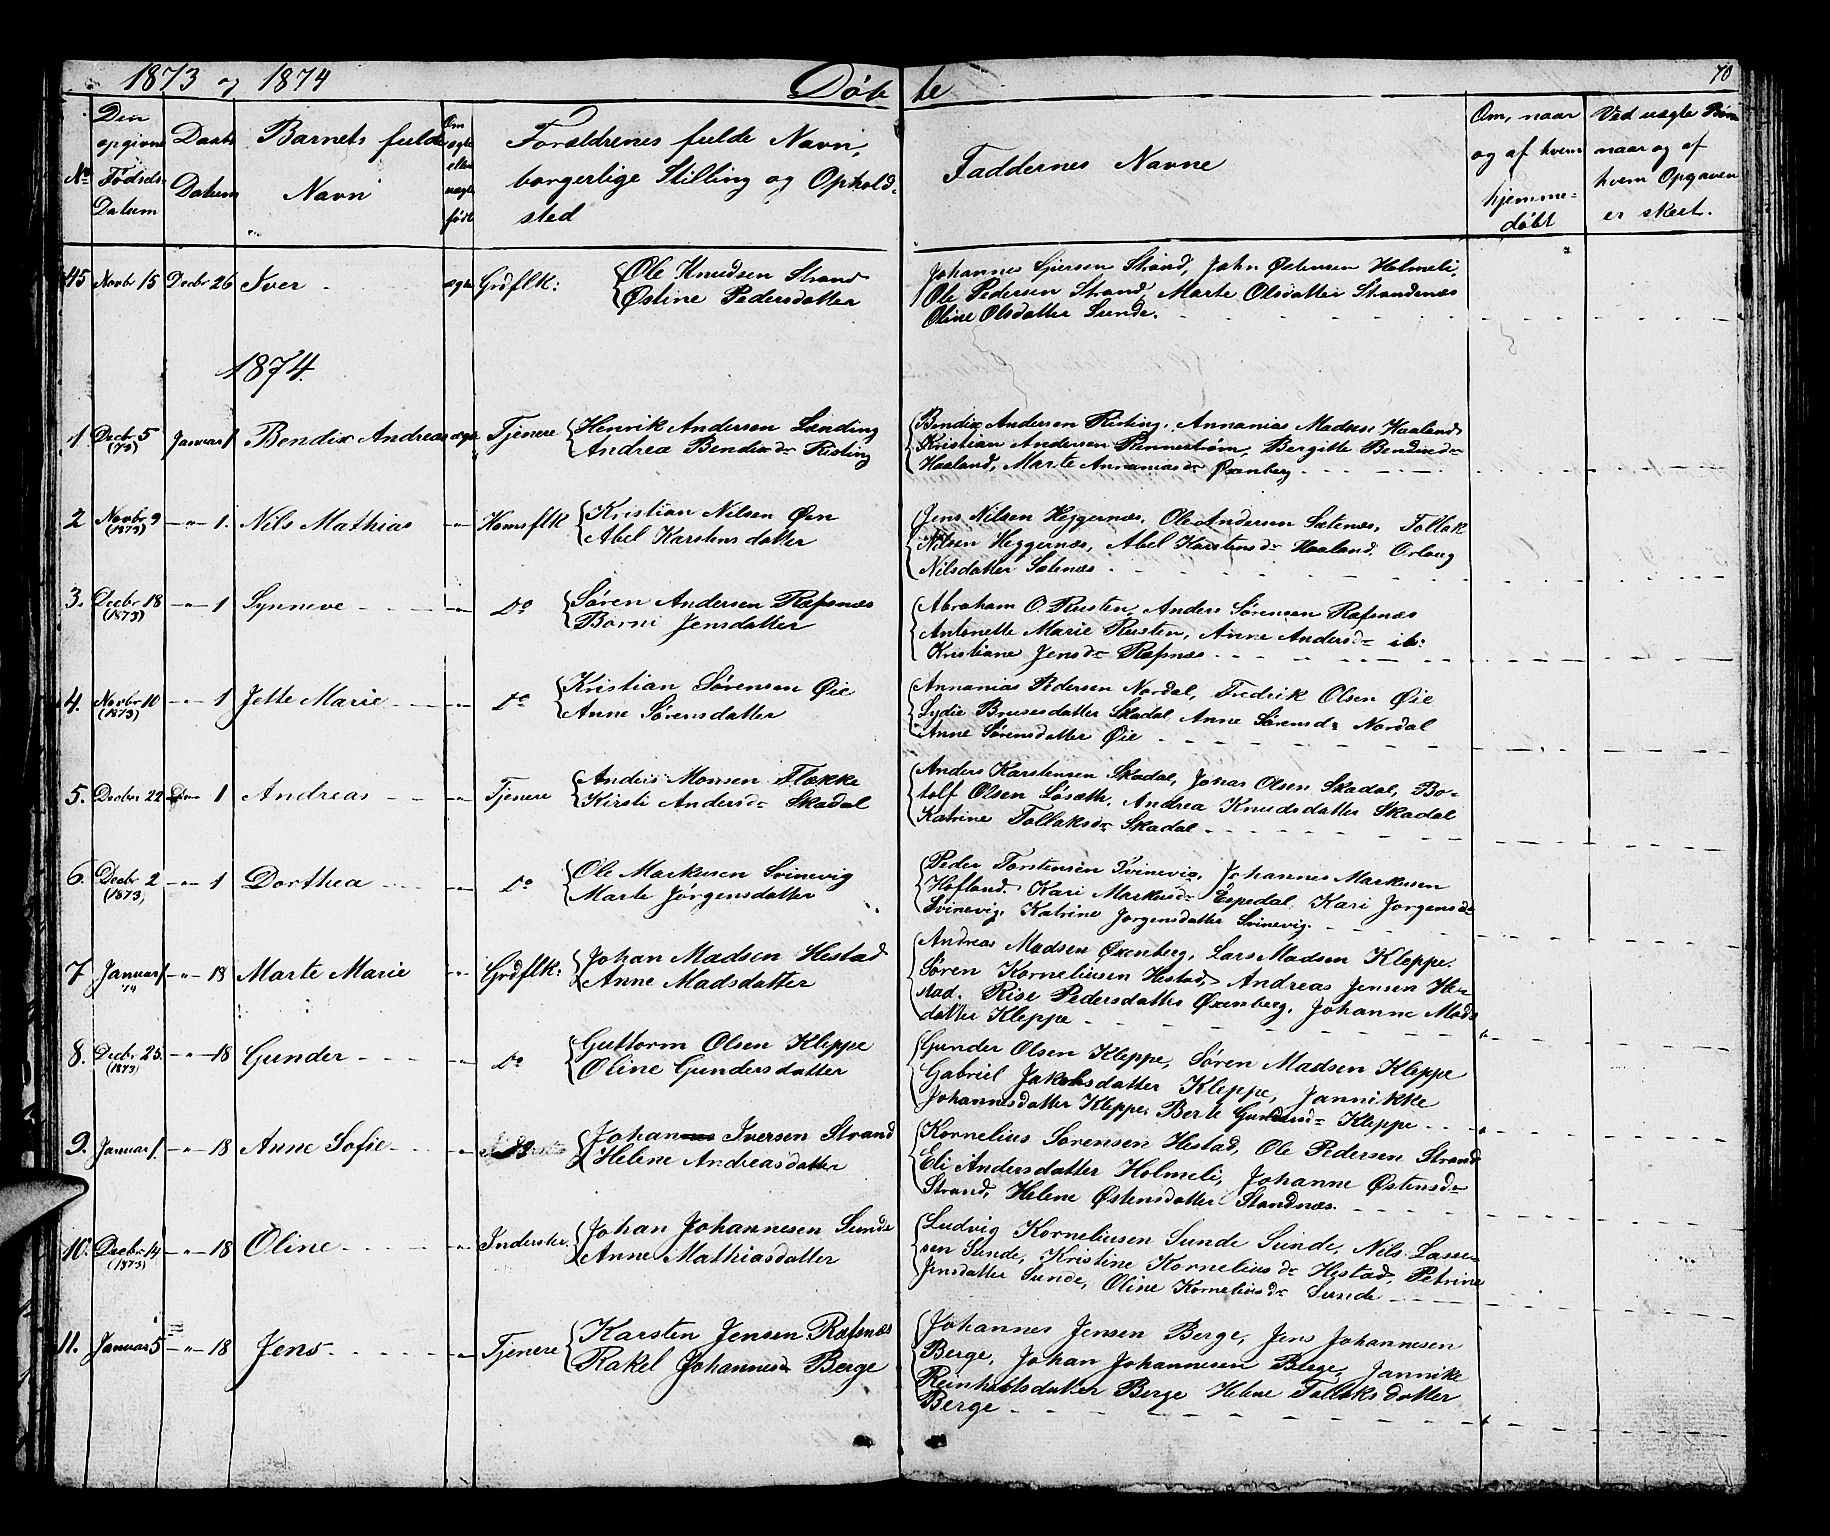 1873 og 1874 Døbte 70
No Den opgivne Fødsels-Datum Daabs Datum Barnets fulde Navn Om ægte eller uægte født Forældrenes fulde Navn, borgerlige Stilling og Opholdsted Faddernes Navne Om, naar og af hvem hjemme-døbt Ved uægte Børn naar og af hvem Opgaven er skeet.
45 Novbr 15 Decbr 26 Iver ægte Grdflk: Ole Knudsen Strand
Østine Pedersdatter
Johannes Gjersen Strand, John Østensen Holmeli,
Ole Pedersen Strand, Marte Olsdatter Strandenæs
Oline Olsdatter Sunde.
1874.
1 Decbr 5 (73) Januar 1 Bendix Andreas ægte Tjenere Henrik Andersen Lending
Andrea Bendixdr Risting
Bendix Andersen Risting, Annanias Madsen Haaland,
Kristian Andersen Rennestrøm, Bergitte Bendixdr
Haaland, Marte Annaniasdr Øxenberg
2 Novbr 9 (1873) -"- 1. Nils Mathias -"- Huusflk Kristian Nilsen Øen
Abel Karstensdatter
Jens Nilsen Heggernæs, Ole Andersen Sætenæs, Tollak
Nilsen Heggernæs, Abel Karstensdr Haaland, Orloug
Nilsdatter Sætenæs
3. Decbr 18 (1873) -"- 1 Synneve -"- Do Søren Andersen Ræfsnæs
Borni Jensdatter
Abraham O. Rusten, Anders Sørensen Ræfsnæs
Antonette Marie Rusten, Anne Andersdr ib:
Kristiane Jensdr Ræfsnæs
4. Novbr 10 (1873) -"- 1 Jette Marie -"- Do Kristian Sørensen Øie
Anne Sørensdatter
Annanias Pedersen Nordal, Fredrik Olsen Øie
Lydie Brusesdatter Skadal Anne Sørensdr Nordal
Anne Sørensdatter Øie
5. Decbr 22 1 Andreas -"- Tjenere Anders Monsen Flekke
Kirsti Andersdr Skadal
Anders Karstensen Skadal, Jonas Olsen Skadal, Bo-
tolf Olsen Løsæth, Andrea Knudsdatter Skadal
Katrine Tollaksdr Skadal
6. Decbr 2 (1873) -"- 1 Dorthea -"- Do Ole Markusen Svinevig
Marte Jørgensdatter
Peder Torstensen Svinevig, Johannes Markusen
Hofland, Kari Markusdr Espedal, Kari Jorgensdr
Svinevig, Katrine Jorgensdatter Svinevig.
7 Januar 1 74 -"- 18 Marte Marie -"- Grdflk: Johan Madsen Hestad
Anne Madsdatter
Andreas Madsen Øxenberg, Lars Madsen Kleppe.
Søren Korneliusen Hestad, Andreas Jensen He-
stad. Rise Pedersdatter Øxenberg, Johanne Mads
datter Kleppe
8. Decbr 25. (1873) -"- 18 Gunder -"- Do Guttorm Olsen Kleppe
Oline Gundersdatter
Gunder Olsen Kleppe, Søren Madsen Kleppe
Gabriel Jakobsdatter Kleppe, Jannikke
Johannesdatter Kleppe, Berte Gundersdr Kleppe
9. Januar 1. -"- 18 Anne Sofie -"- Johannes Iversen Strand
Helene Andreasdatter
Kornelius Sørensen Hestad, Ole Pedersen Strand
Eli Andersdatter Holmeli, Johanne Østensdr
Strand, Helene Østensdatter Standnæs.
10. Decbr 14 (1873) -"- 18 Oline -"- Inderster. Johan Johannesen Sunde
Anne Mathiasdatter
Ludvig Korneliusen Sunde Sunde, Nils Lasse-
sen Sunde, Kristine Korneliusdr Hestad, Petrine
Jensdatter Sunde, Oline Korneliusdr Sunde
11. Januar 5 -"- 18 Jens -"- Tjenere Karsten Jensen Ræfsnæs
Rakel Johannesdr Berge
Johannes Jensen Berge, Jens Johannesen
Berge, Johan Johannesen Berge, Jannike
Reinholtsdatter Berge Helene Tollaksdatter
Berge